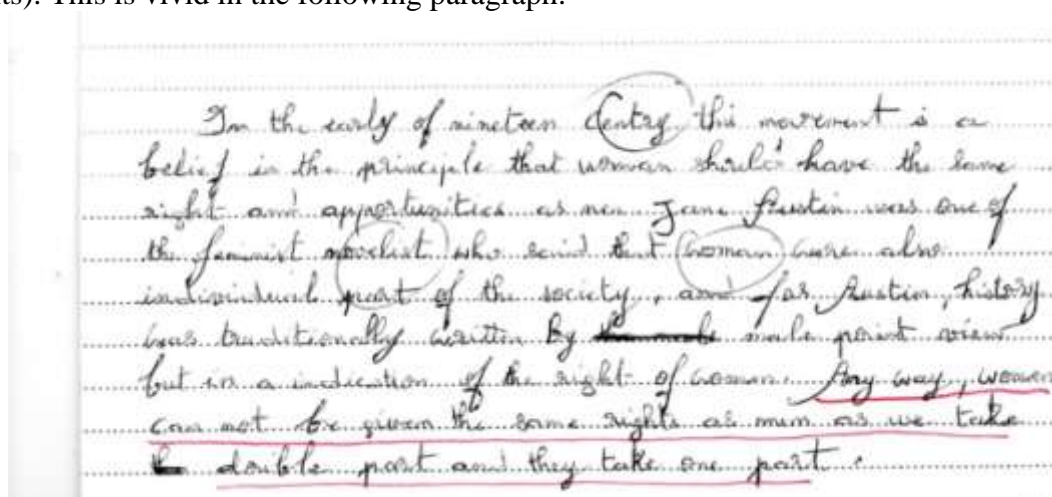 ts). This is vivid in the following paragraph.
In the early of nineteen Centry this movement is a
belief in the principle that woman should have the same
right and apportunities as men Jane Austin was one of
the feminist novelist who said that woman were also
individual part of the society, and for Austin, history
was traditionally written by male point view
but in a indication of the right of woman. Any way, women
can not be given the same rights as mun as we take
double part and they take one part.